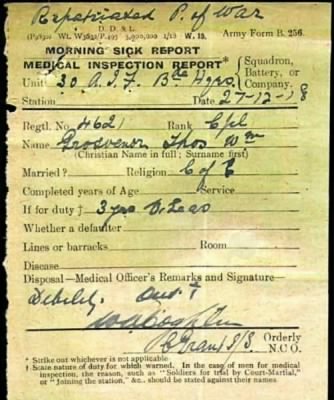 Repatriated P. of War
D. D. & L.
(P9830) Wt. W3632/P495 3,900,000 1/18 W. 19. Army Form B. 256.
MORNING SICK REPORT
MEDICAL INSPECTION REPORT* { Squadron, Battery, or Company.
Unit 30 A.I.F. Bde Hqrs
Station Date 27-12-18
Regtl. No 4621 Rank Cpl
Name Grosvenor Thos Wm
(Christian Name in full; Surname first)
Married? Religion C of E
Completed years of Age Service
If for duty † 3 yrs
Whether a defaulter
Lines or barracks Room
Disease
Disposal—Medical Officer's Remarks and Signature—
Debility.
Orderly N.C.O.
* Strike out whichever is not applicable
† Scale nature of duty for which warned. In the case of men for medical
inspection, the reason, such as "Soldiers for trial by Court-Martial,"
or "Joining the station," &c., should be stated against their names